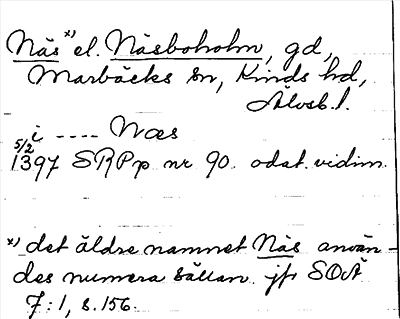 Näs ˣ⁾ el. Näsboholm, gd,
Marbäcks sn, Kinds hd,
Älvsb. l.
i ---- Næs
5/2 1397 SRPp nr 90. odat. vidim.
ˣ⁾ det äldre namnet Näs använ-
des numera sällan jfr SOÄ
7:1, s. 156.